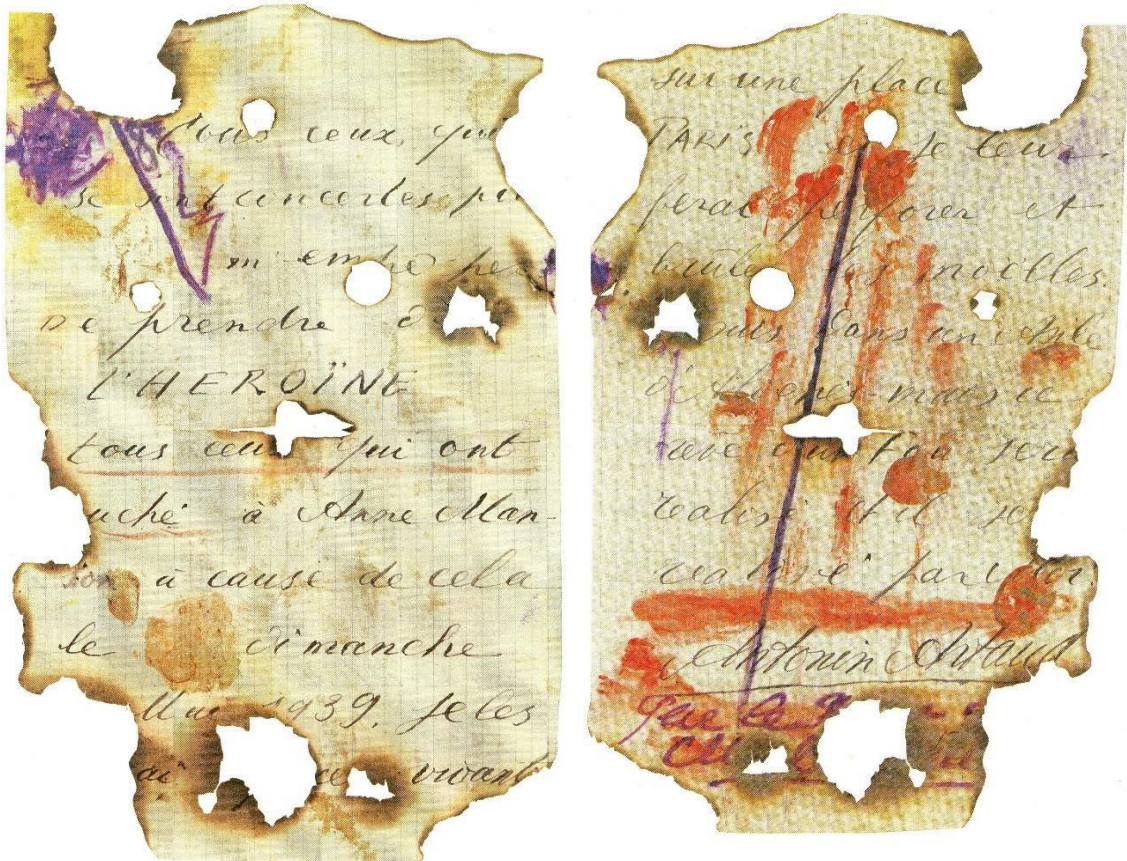 Tous ceux, qui
se sont concertés
m'empê
De prendre
L'HEROÏNE
tous ceux qui ont
uché à Anne Man-
son à cause de cela
le dimanche
Mai 1939, je les
vivant
sur une place
PARIS et je leur
ferai perforer et
brûler les moelles.
suis dans un Asile
d'Aliénés mais ce
rêve d'un Fou sera
réalisé et il se
réalisé par
Antonin Artaud